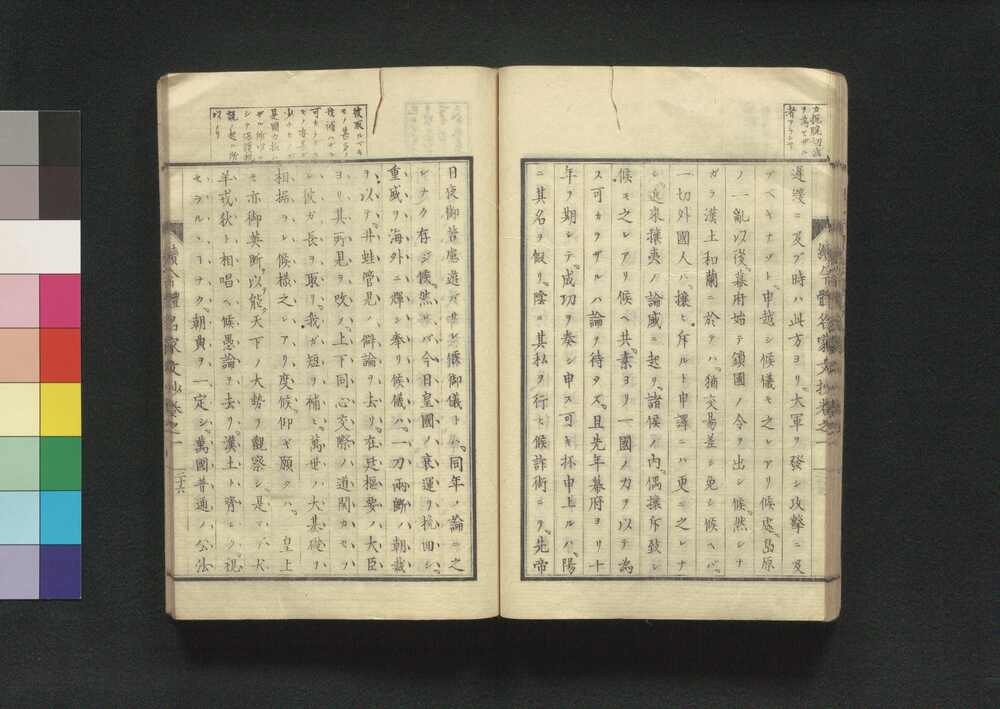 遅緩ニ及ブ時ハ此方ヨリ大軍ヲ發シ攻撃ニ及
ブベキナゾト申越シ候儀モ之レアリ候處島原
ノ一亂以後幕府始テ鎖國ノ令ヲ出シ候然シナ
ガラ漢土和蘭ニ於テハ猶交易差シ免シ候ヘバ
一切外國人ハ攘ヒ斥ルト申譯ニハ更ニ之レナ
シ近來攘夷ノ論盛ニ起リ諸侯ノ内偶攘斥致シ
候モ之レアリ候ヘ共素ヨリ一國ノ力ヲ以テ為
ス可カラザルハ論ヲ待タズ且先年幕府ヨリ十
年ヲ期シテ成功ヲ奏シ申ス可キ抔申上ルハ陽
ニ其名ヲ假リ陰ニ其私ヲ行ヒ候詐術ニテ先帝
日夜御苦慮遊バサレ候御儀トハ同年ノ論ニ之
レナク存ジ候然レバ今日皇國ノ衰運ヲ挽回シ
重威ヲ海外ニ燿シ奉リ候儀ハ一刀兩斷ノ朝裁
ヲ以テ井蛙管見ノ僻論ヲ去リ在廷樞要ノ大臣
ヨリ其所見ヲ改メ上下同心交際ノ道開カセ
彼ガ長ヲ取リ我ガ短ヲ補ヒ萬世ノ大基礎ヲ
相据ラレ候様之レアリ度候仰ギ願クハ皇上
モ亦御英斷以能天下ノ大勢ヲ觀察シ是マデ犬
羊戎狄ト相唱ヘ候愚論ヲ去リ漢土ト齊シク視
セラルヽコナク朝典ヲ一定シ萬國普通ノ公法